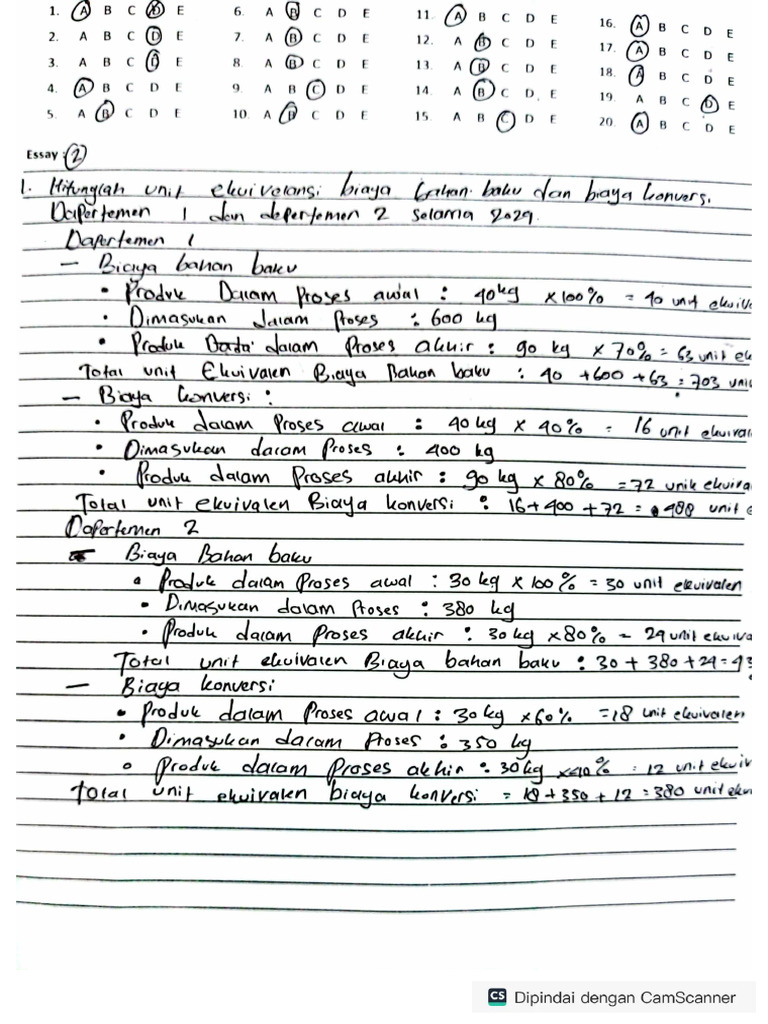 1. A B C D E 6. A B C D E 11. A B C D E 16. A B C D E
2. A B C D E 7. A B C D E 12. A B C D E 17. A B C D E
3. A B C D E 8. A B C D E 13. A B C D E 18. A B C D E
4. A B C D E 9. A B C D E 14. A B C D, E 19. A B C D E
5. A B C D E 10. A B C D E 15. A B C D E 20. A B C D E
Essay : 2
1. Hitunglah unit ekuivelansi biaya bahan baku dan biaya konversi
Dapertemen 1 dan depertemen 2 Selama 2029.
Dapertemen 1
- Biaya bahan baku
• Produk Dalam Proses awal : 40kg x100% = 40 unit ekuiv
• Dimasukan dalam Proses : 600 kg
• Produk dalam Proses akhir : 90 kg x 70% = 63 unit ek
Total unit Ekuivalen Biaya Bahan baku : 40 +600 +63 = 703 uni
- Biaya konversi :
• Produk dalam Proses awal : 40 kg x 40% = 16 unit ekuival
• Dimasukan dalam Proses : 400 kg
• Produk dalam Proses akhir : 90 kg x 80% = 72 unik ekuiva
Total unit ekuivalen Biaya konversi : 16+400+72 = 488 unit e
Dapertemen 2
- Biaya Bahan baku
• Produk dalam Proses awal : 30 kg x 100% = 30 unit ekuivalen
• Dimasukan dalam Proses : 380 kg
• Produk dalam Proses akhir : 30kg x80% = 24 unit ekuiva
Total unit ekuivalen Biaya bahan baku : 30 + 380 +24 = 43
- Biaya konversi
• Produk dalam Proses awal : 30kg x60% = 18 unit ekuivalen
• Dimasukan dalam Proses : 350 kg
• Produk dalam Proses akhir : 30kg x40% = 12 unit ekuiv
Total unit ekuivalen biaya konversi = 18 +350 + 12 = 380 unit ekuiv
CS Dipindai dengan CamScanner